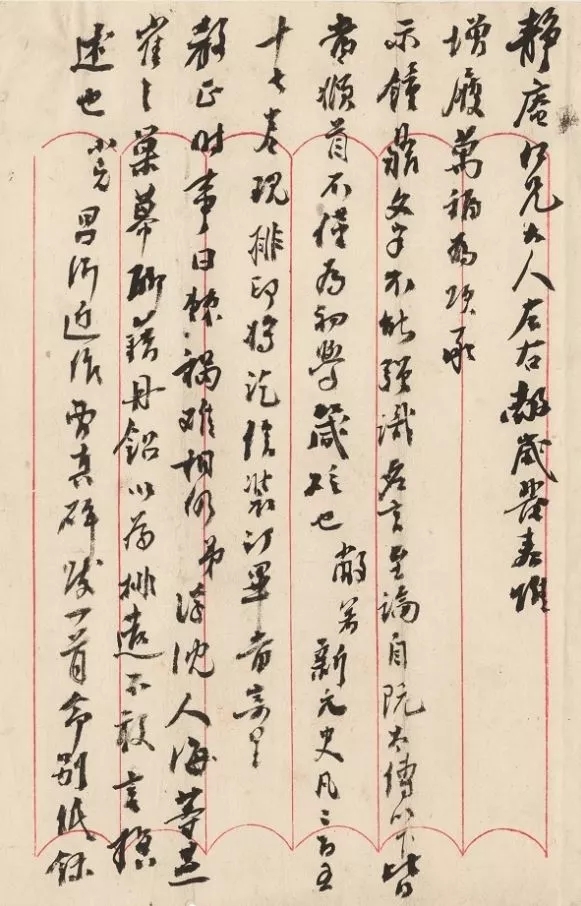 静庵仁兄大人左右献岁发春维
增履万福为颂承
示钟鼎文字不能强识名言至论自阮太傅以下皆
当頫首不仅为初学箴砭也敝著新元史凡二百五
十七卷现排印将讫俟装订毕当寄呈
教正时事日棘祸难相仍弟浮沈人海等燕
雀之巢幕聊藉丹铅以为排遣不敢言撰
述也小儿昌绶近作曹真碑跋一首令别纸录